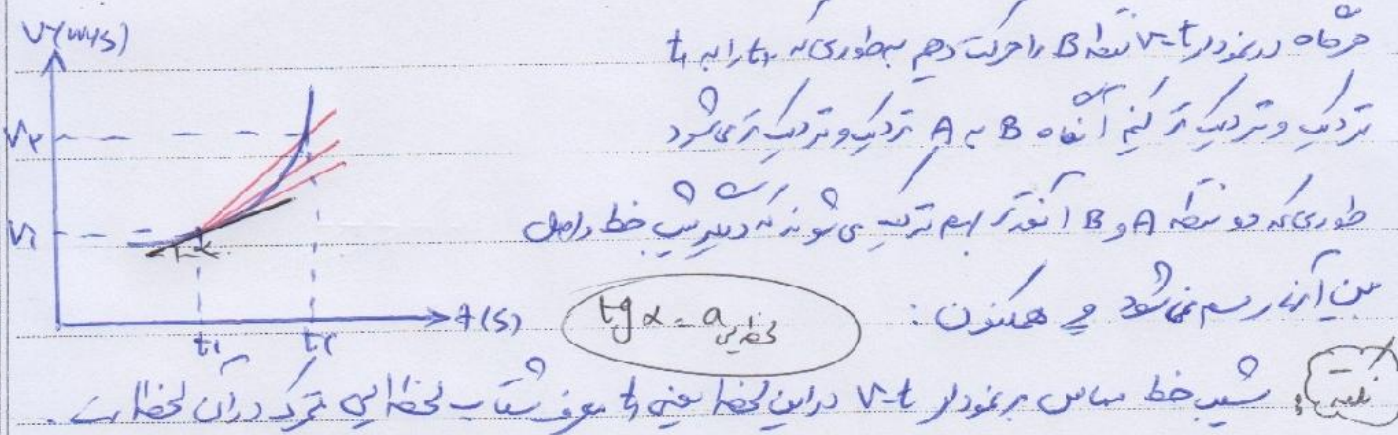 هرگاه در نمودار v-t نقطه B را حرکت دهیم به طوری که t₂ را به t₁
نزدیک و نزدیک تر کنیم آنگاه B به A نزدیک و نزدیک تر می شود
طوری که دو نقطه A و B آنقدر بهم نزدیک می شوند که دیگر شیب خط واصل
بین آنها رسم نمی شود هم اکنون :
tg α = a لحظه ایی
نکته: شیب خط مماس بر نمودار v-t در این لحظه یعنی t₁ معرف شتاب لحظه ایی متحرک در آن لحظه است.
V(m/s)
V₂
V₁
α
t₁ t₂ t(s)